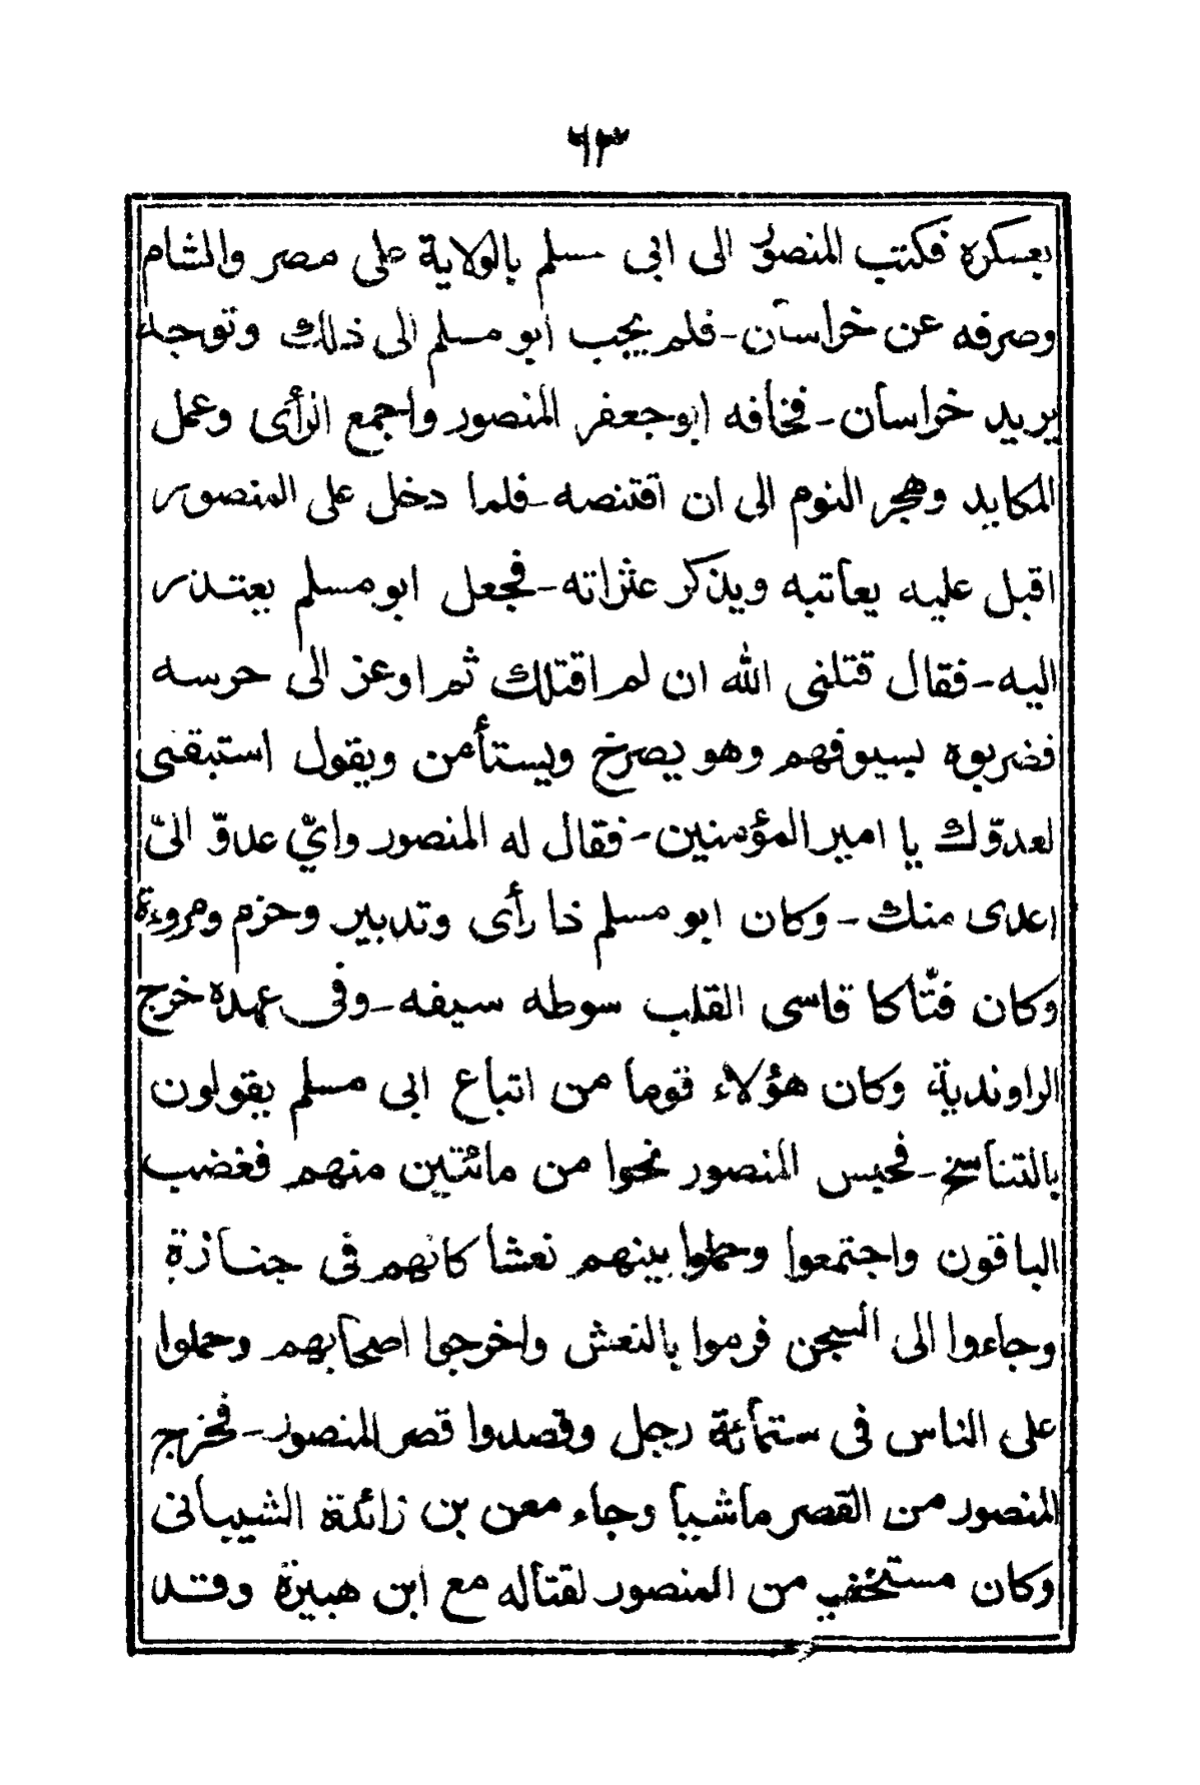 ٦٣
بعسكره فكتب المنصور الى ابى مسلم بالولاية على مصر والشام
وصرفه عن خراسان - فلم يجب ابو مسلم الى ذلك وتوجه
يريد خراسان - فخافه ابو جعفر المنصور واجمع الرأى وعمل
المكايد وهجر النوم الى ان اقتنصه - فلما دخل على المنصور
اقبل عليه يعاتبه ويذكر عثراته - فجعل ابو مسلم يعتذر
اليه - فقال قتلنى الله ان لم اقتلك ثم اوعز الى حرسه
فضربوه بسيوفهم وهو يصرخ ويستأمن ويقول استبقنى
لعدوّك يا امير المؤمنين - فقال له المنصور وايّ عدوّ الىّ
اعدى منك - وكان ابو مسلم ذا رأى وتدبير وحزم ومروءة
وكان فتّاكا قاسى القلب سوطه سيفه - وفى عهده خرج
الراوندية وكان هؤلاء قوما من اتباع ابى مسلم يقولون
بالتناسخ - فحبس المنصور نحوا من مائتين منهم فغضب
الباقون واجتمعوا وحملوا بينهم نعشا كانهم فى جنازة
وجاءوا الى السجن فرموا بالنعش واخرجوا اصحابهم وحملوا
على الناس فى ستمأئة رجل وقصدوا قصر المنصور - فخرج
المنصور من القصر ماشيا وجاء معن بن زائدة الشيبانى
وكان مستخفي من المنصور لقتاله مع ابن هبيرة وقد